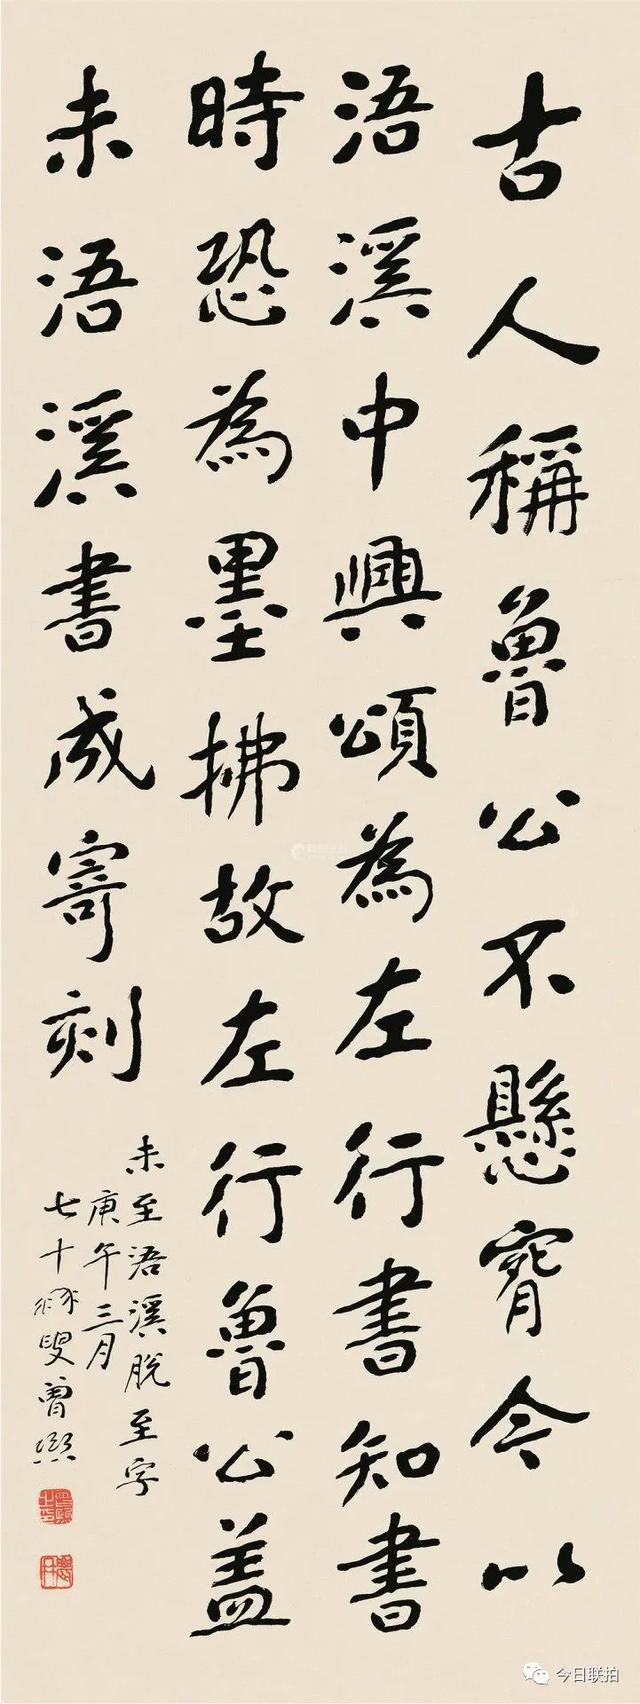 古人稱魯公不懸𦜝今以
浯溪中興頌為左行書知書
時恐為墨拂故左行魯公蓋
未浯溪書成寄刻
未至浯溪脫至字
庚午三月
七十𫖯叟曾熙
今日联拍